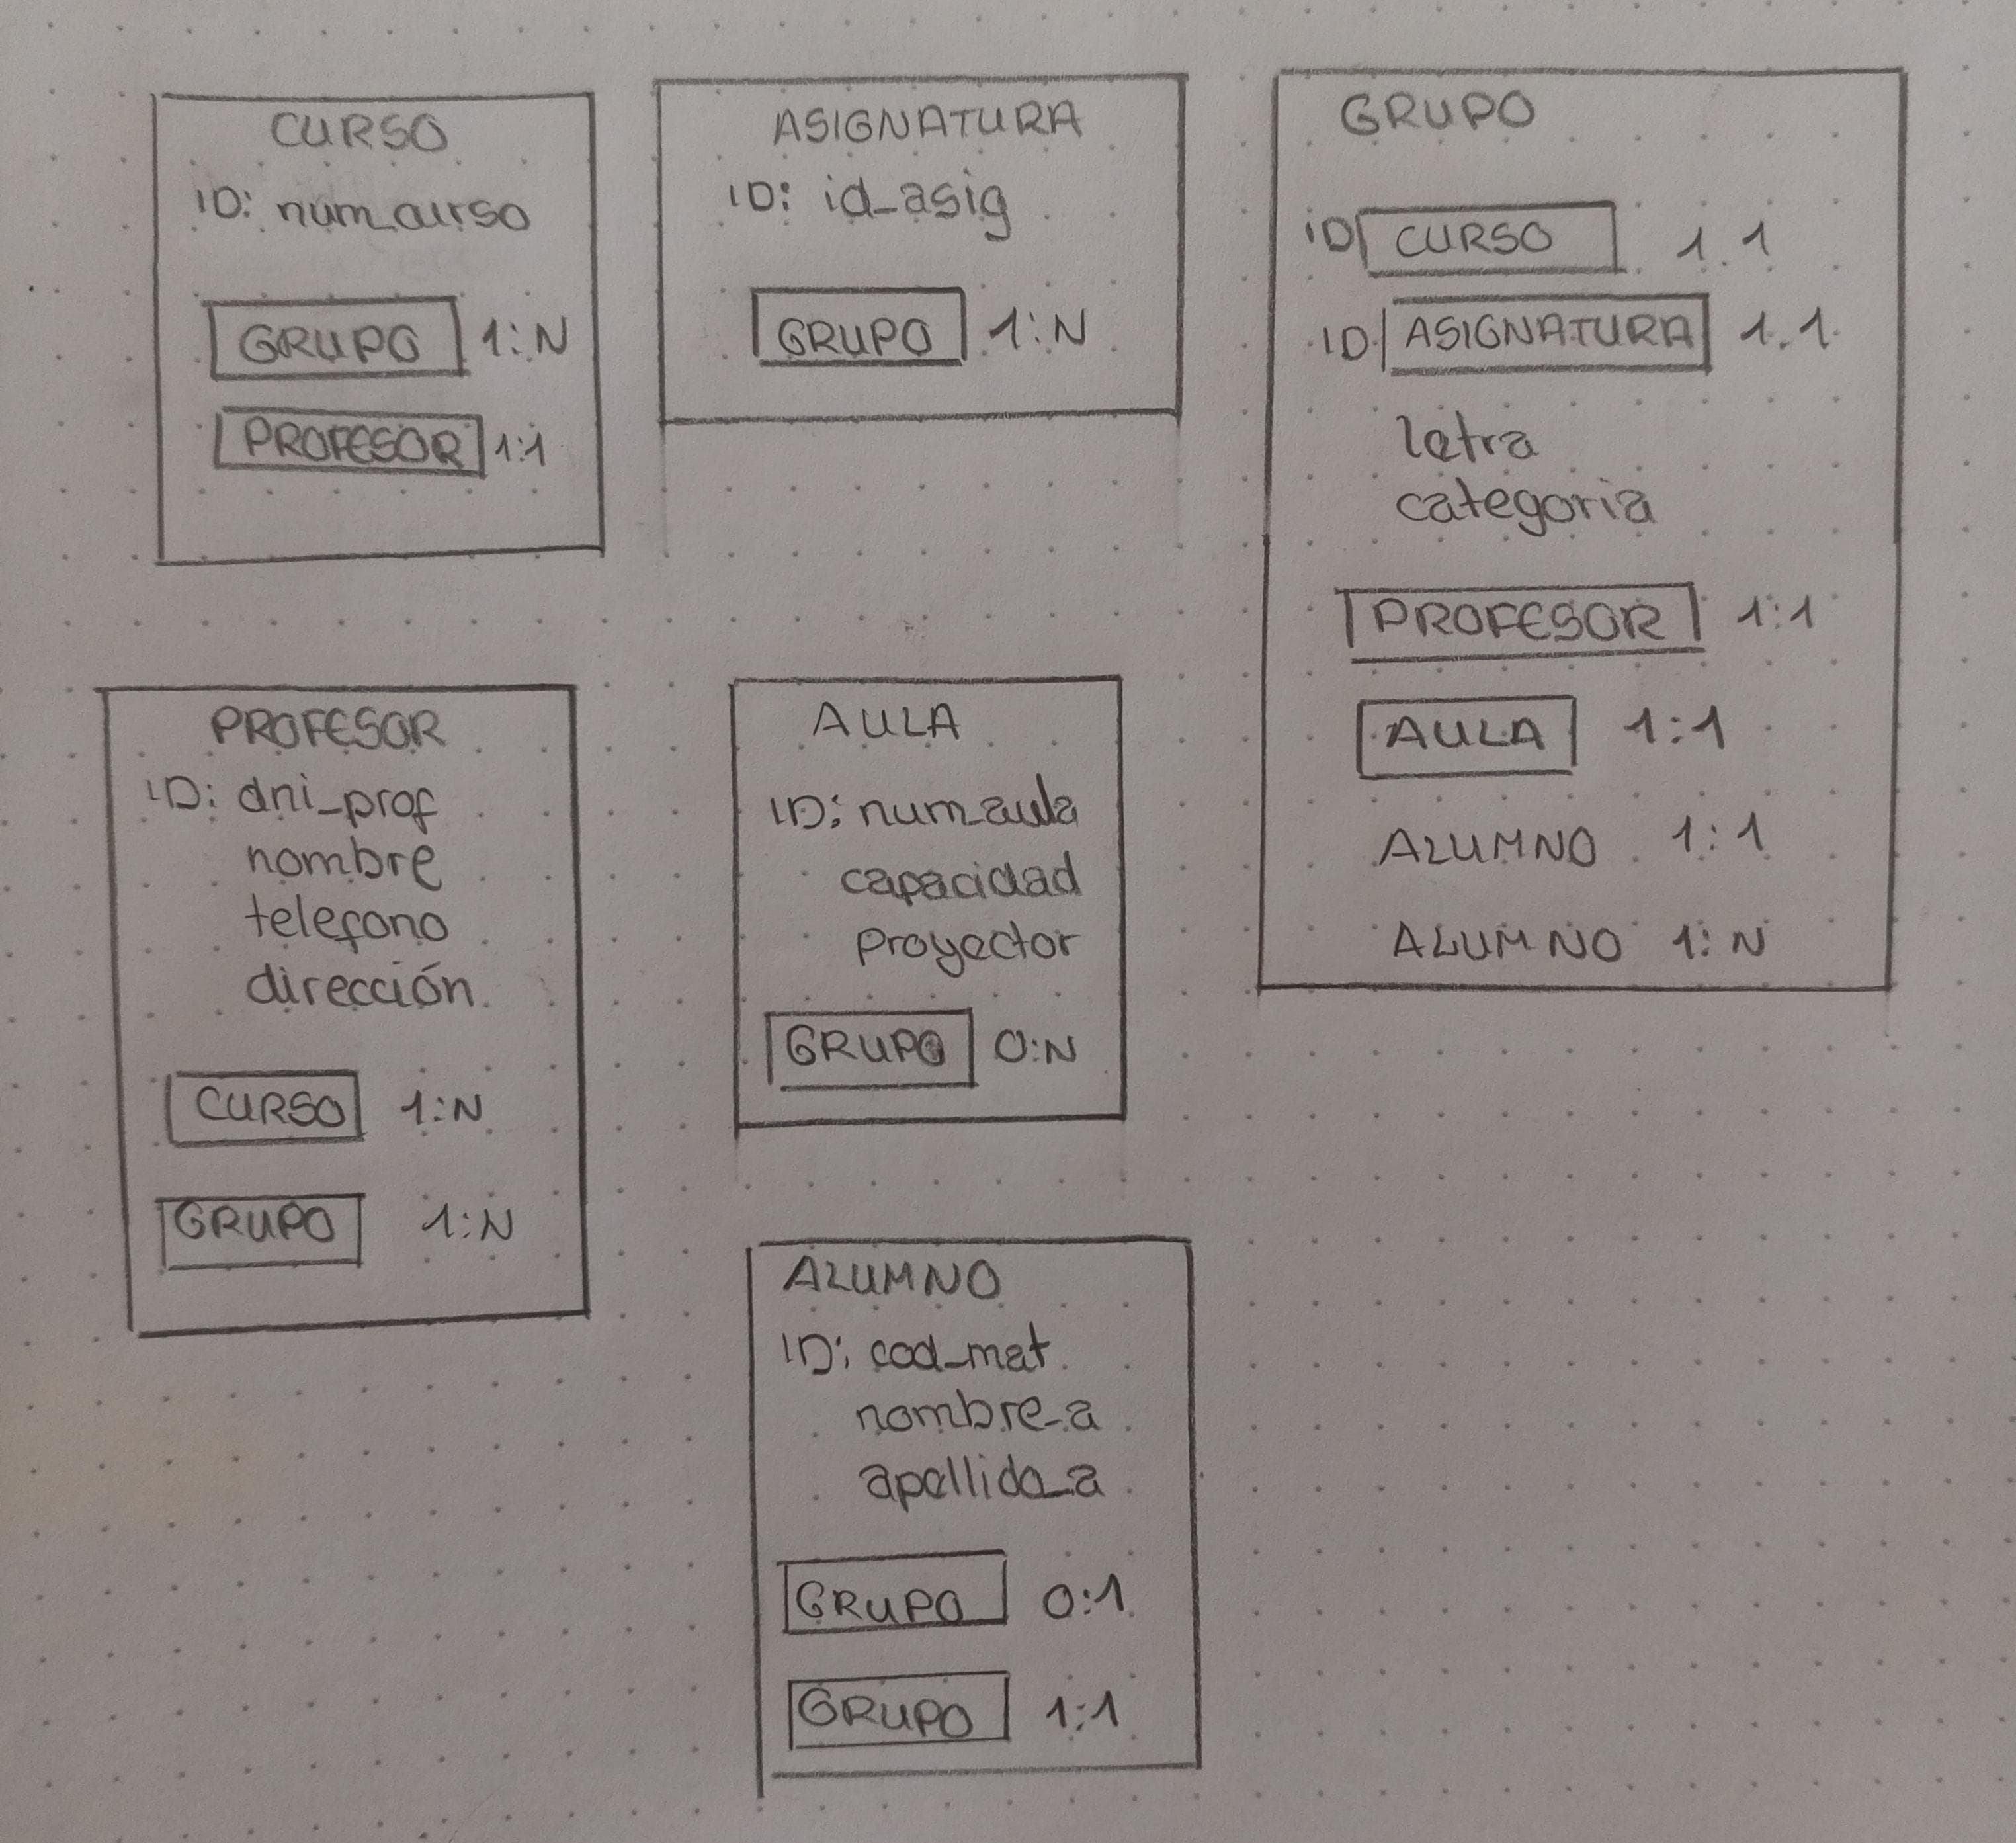 CURSO
ID: num_curso
GRUPO 1:N
PROFESOR 1:1
ASIGNATURA
ID: id_asig
GRUPO 1:N
GRUPO
ID CURSO 1.1
ID ASIGNATURA 1.1
letra
categoria
PROFESOR 1:1
AULA 1:1
ALUMNO 1:1
ALUMNO 1:N
PROFESOR
ID: dni_prof
nombre
telefono
dirección
CURSO 1:N
GRUPO 1:N
AULA
ID: num_aula
capacidad
proyector
GRUPO 0:N
ALUMNO
ID: cod_mat
nombre_a
apellido_a
GRUPO 0:1
GRUPO 1:1